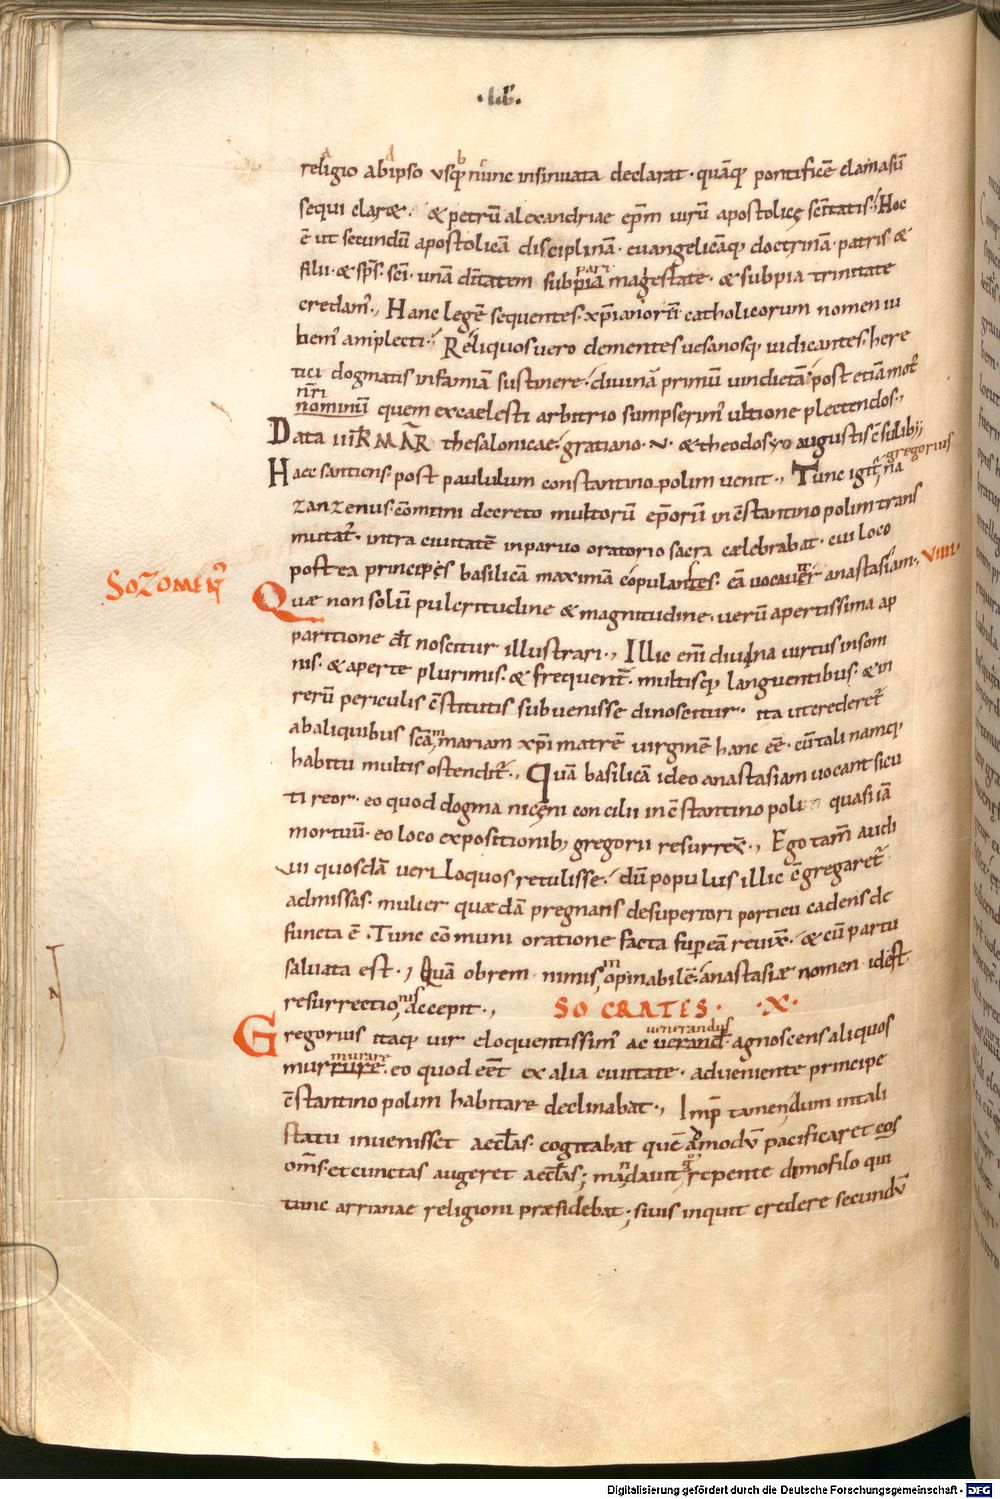 ·lib·
religio ab ipso usq; nunc insinuata declarat· quāq; pontificē damasū
sequi claræ· & petrū alexandriae ep̄m virū apostolicę sc̄itatis; Hoc
ē ut secundū apostolicā disciplinā· euangelicāq; doctrinā· patris &
filii· & sp̄s· sc̄i· unā dūtatem sub pia pari magestate· & subpia trinitate
credam̄., Hanc legē sequentes· xp̄ianorū catholicorum nomen iu
bem̄ amplecti; Reliquos uero dementes uesanosq; iudicantes· here
tici dogmatis infamiā sustinere· diuinā primū uindictā· post etiā mot̄
nominū nr̄i quem ex caelesti arbitrio sumpserim̄ ultione plectendos.,
Data iii k̄ MAR̄ thesalonicae· gratiano· v· & theodosyo augustis c̄sulib;
Haec santiens· post paululum constantinopolim uenit., Tunc igit̄ gregorius na
zanzenus cōmuni decreto multorū ep̄orū in c̄stantinopolim trans
mutat̄· intra ciuitatē in paruo oratorio sacra cælebrabat· cui loco
postea principęs basilicā maximā copulantes· eā uocauer anastasiam· VIIII·
SOZOMEN̄
Quæ non solū pulcritudine & magnitudine· uerū apertissima ap
paritione d̄i noscitur illustrari., Illic eni diuina uirtus in som
nis· & aperte plurimis· & frequent̄· multisq; languentibus· & in
rerū periculis c̄stitutis subuenisse dinoscitur· ita ut crederet̄
ab aliquibus sc̄am mariam xp̄i matrē uirginē hanc eē· cū tali namq;
habitu multis ostendit̄., Quā basilicā ideo anastasiam uocant sicu
ti reor· eo quod dogma nicęni concilii in c̄stantinopoli quasi iā
mortuū· eo loco expositionib; gregorii resurrex̄., Ego tam̄ audi
ui quosdā ueriloquos retulisse· dū populus illic c̄gregaret̄
admissas· mulier quædā pregnans de superiori porticu cadens de
functa ē· Tunc cōmuni oratione facta sup eā reuix̄· & cū partu
saluata est·, Quā obrem nimis inopinabilē· anastasiæ nomen id est
resurrectionis accepit., SOCRATES· ·X·
Gregorius itaq; uir eloquentissim̄ ac uerand· uenerandus agnoscens aliquos
murrure murare· eo quod eēt ex alia ciuitate· adueniente principe
c̄stantinopolim habitare declinabat., Imp̄ tamen dum in tali
statu inuenisset aecl̄as· cogitabat quē admodū pacificaret eos
om̄s· et cunctas augeret aecl̄as; mandauit g° repente demofilo qui
tunc arrianae religioni præsidebat; siuis inquit credere secundū
Digitalisierung gefördert durch die Deutsche Forschungsgemeinschaft - DFG